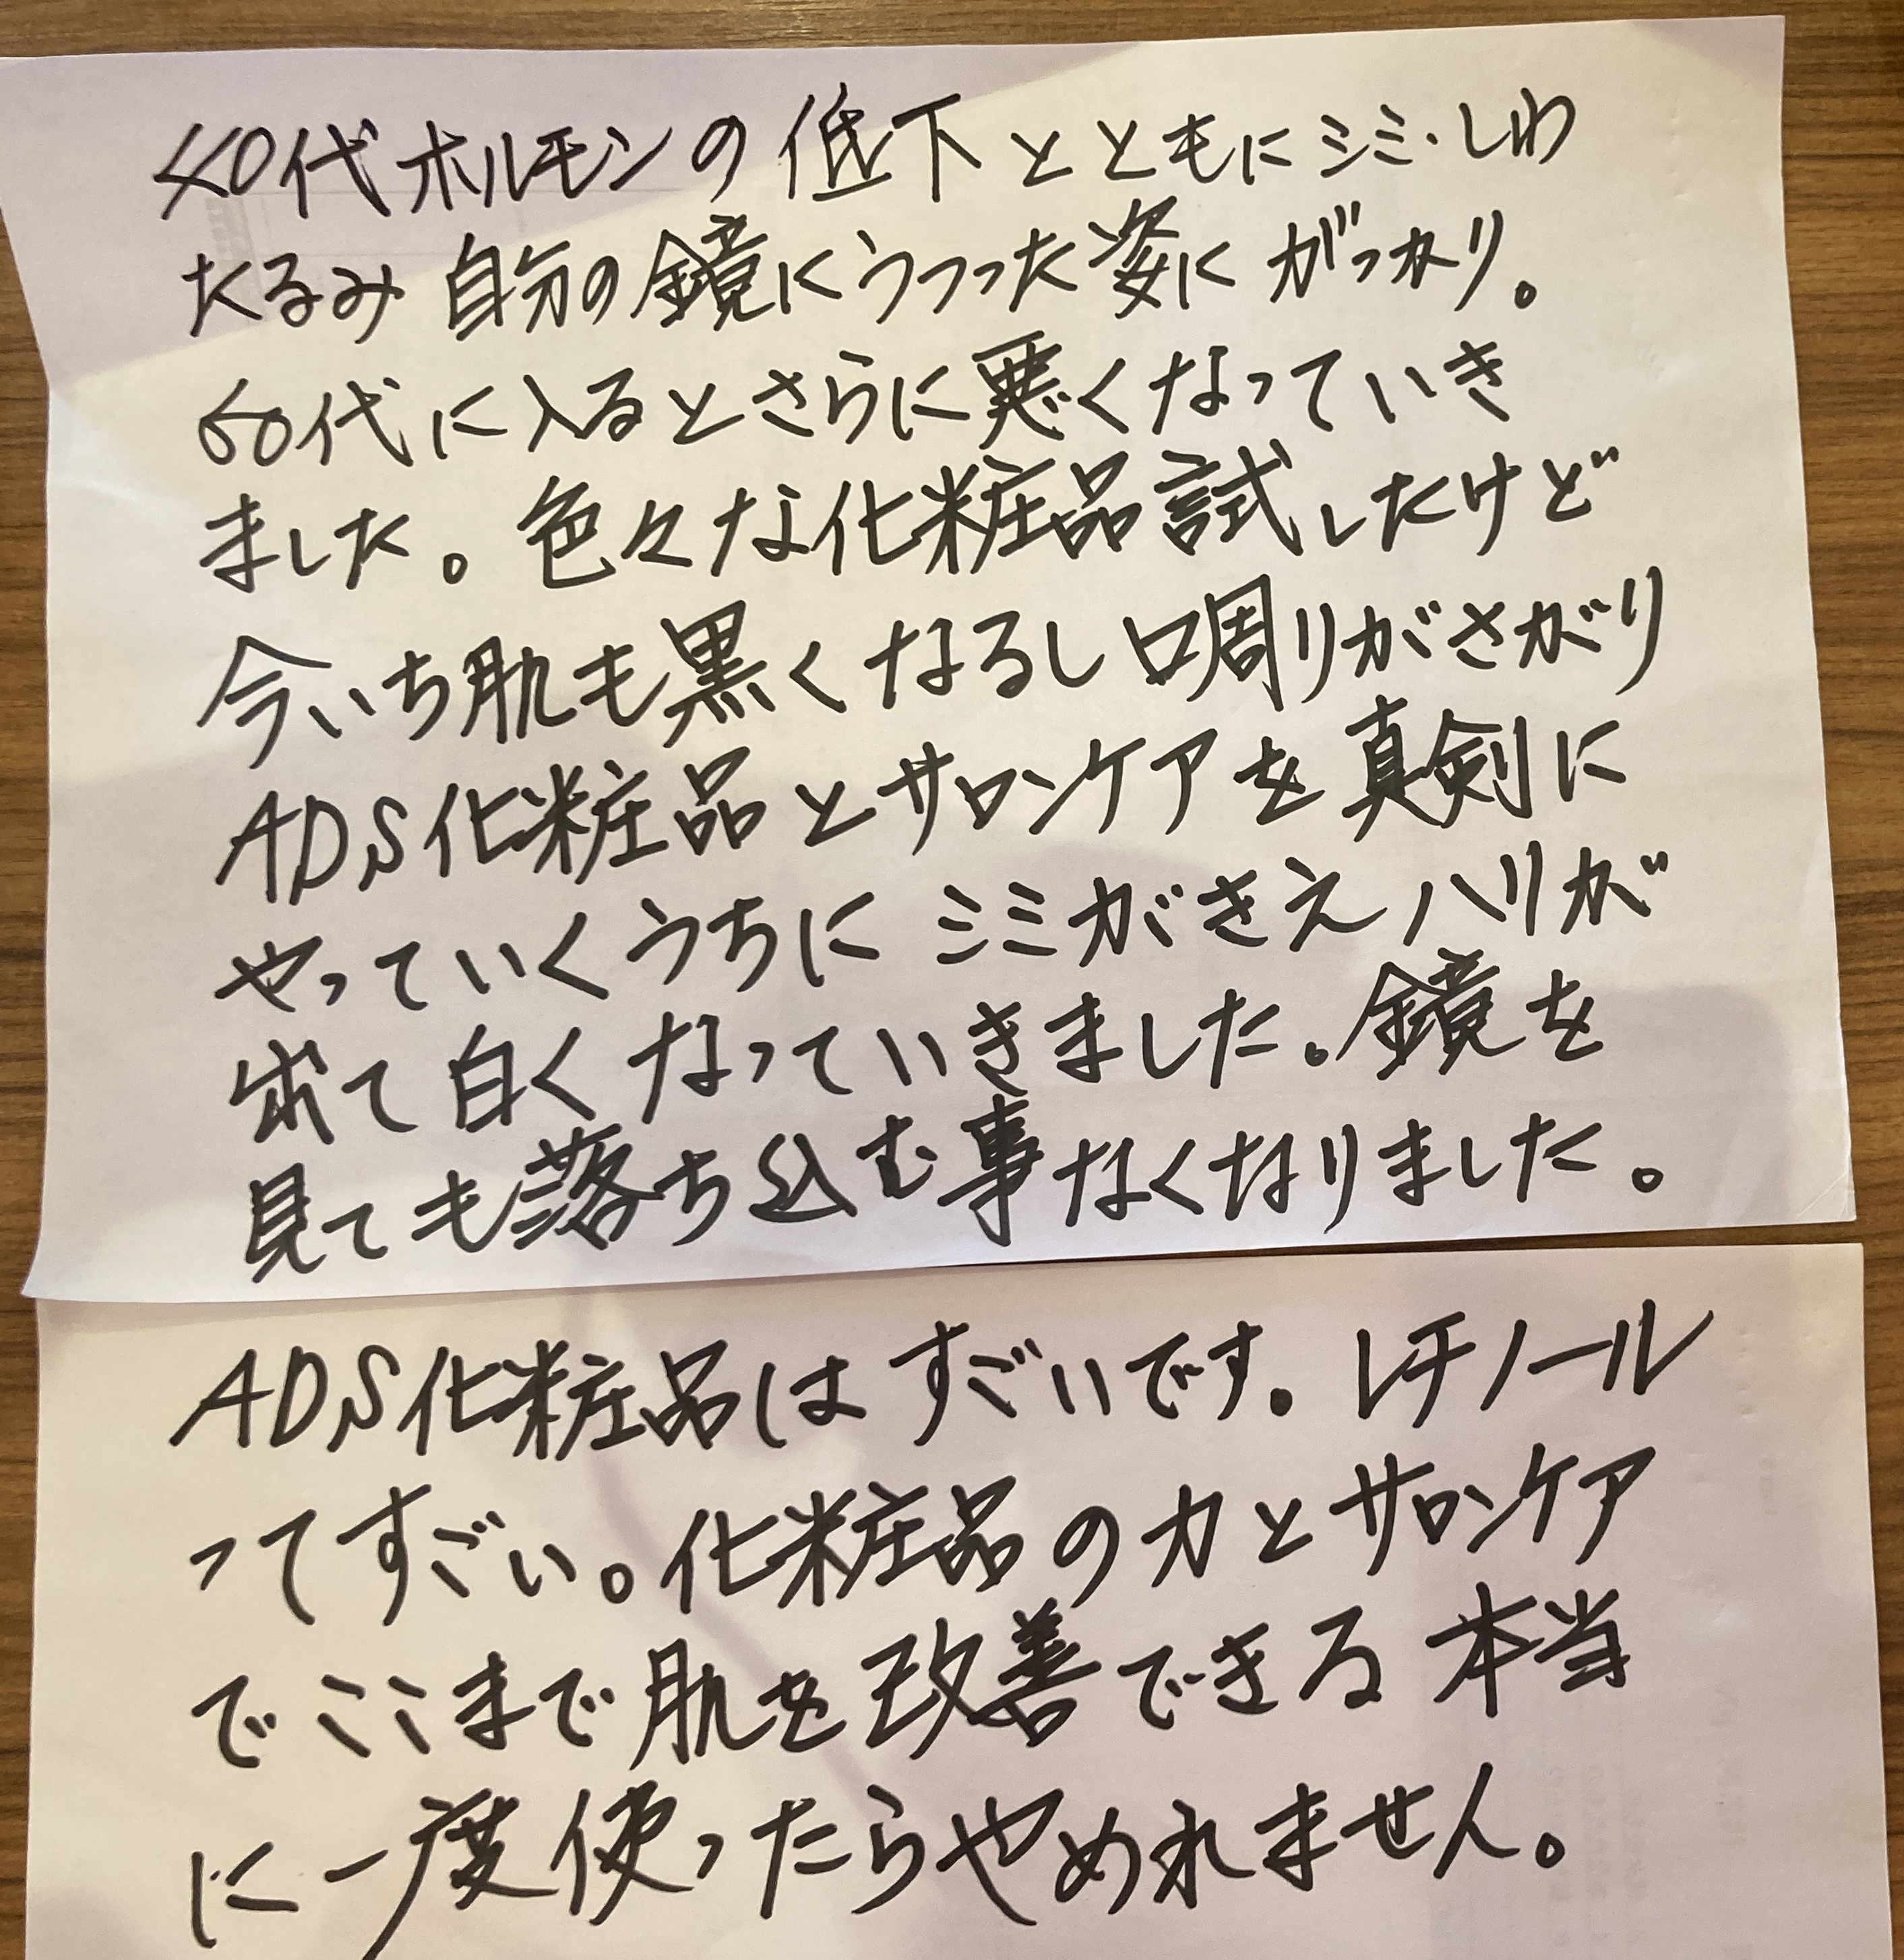 40代ホルモンの低下とともにシミ・しわ
たるみ自分の鏡にうつった姿にがっかり。
60代に入るとさらに悪くなっていき
ました。色々な化粧品試したけど
今いち肌も黒くなるし口周りがさがり
ADS化粧品とサロンケアを真剣に
やっていくうちにシミがきえハリが
出て白くなっていきました。鏡を
見ても落ち込む事なくなりました。
ADS化粧品はすごいです。レチノール
ってすごい。化粧品の力とサロンケア
でここまで肌を改善できる本当
に一度使ったらやめれません。